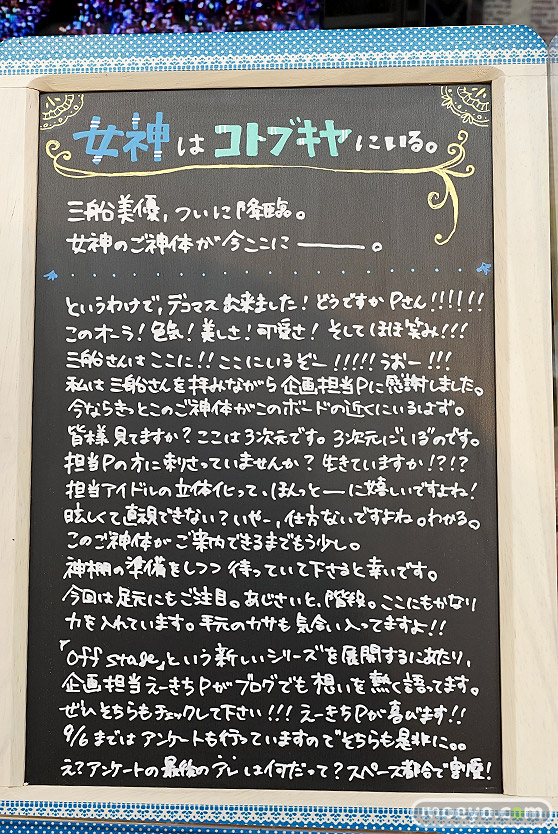 女神はコトブキヤにいる。
三船美優,ついに降臨。
女神のご神体が今ここに―――。
というわけで,デコマス出来ました!どうですかPさん!!!!!!
このオーラ!色気!美しさ!可愛さ!そしてほほ笑み!!!
三船さんはここに!!ここにいるぞー!!!!!うおー!!!
私は三船さんを拝みながら企画担当Pに感謝しました。
今ならきっとこのご神体がこのボードの近くにいるはず。
皆様見てますか?ここは3次元です。3次元にいるのです。
担当Pの方に刺さっていませんか?生きていますか!?!?
担当アイドルの立体化って、ほんっとーに嬉しいですよね!
眩しくて直視できない?いやー,仕方ないですよね。わかる。
このご神体がご案内できるまでもう少し。
神棚の準備をしつつ待っていて下さると幸いです。
今回は足元にもご注目。あじさいと、階段。ここにもかなり
力を入れています。手元のカサも気合い入ってますよ!!
「Off stage」という新しいシリーズを展開するにあたり,
企画担当えーきちPがブログでも想いを熱く語ってます。
ぜひそちらもチェックして下さい!!!えーきちPが喜びます!!
9/6まではアンケートも行っていますのでそちらも是非に。。
え?アンケートの最後のアレは何だって?スペース都合で割愛!